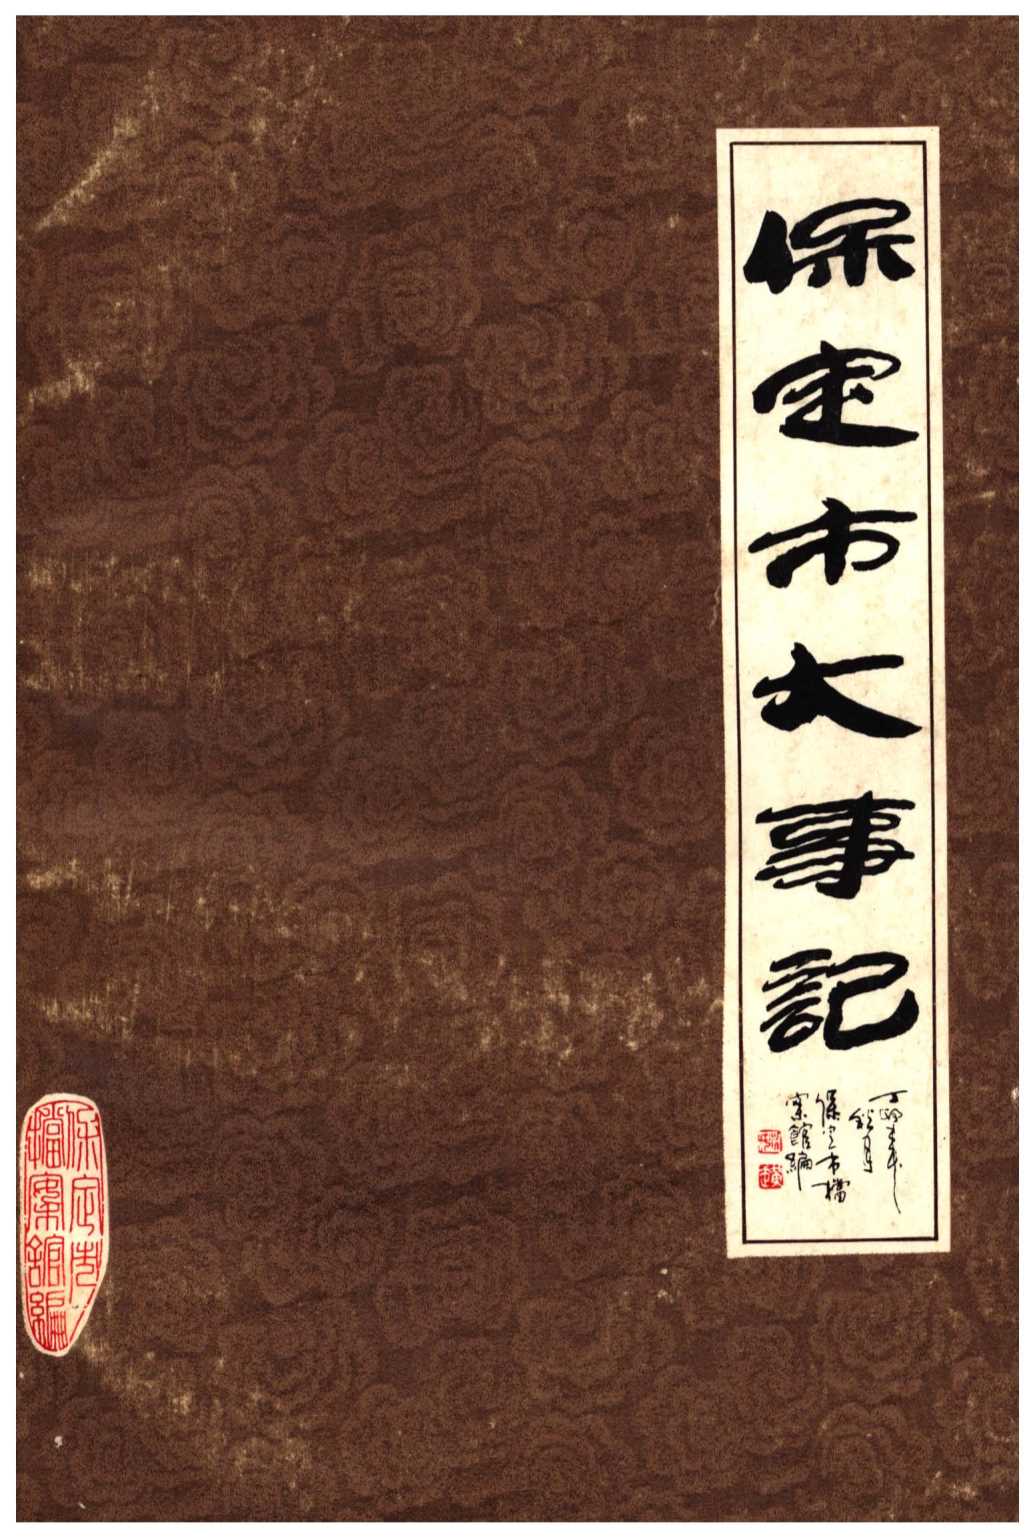 保定市大事記
丁卯年
秋月
保定市檔
案館編
保定市
檔案館編